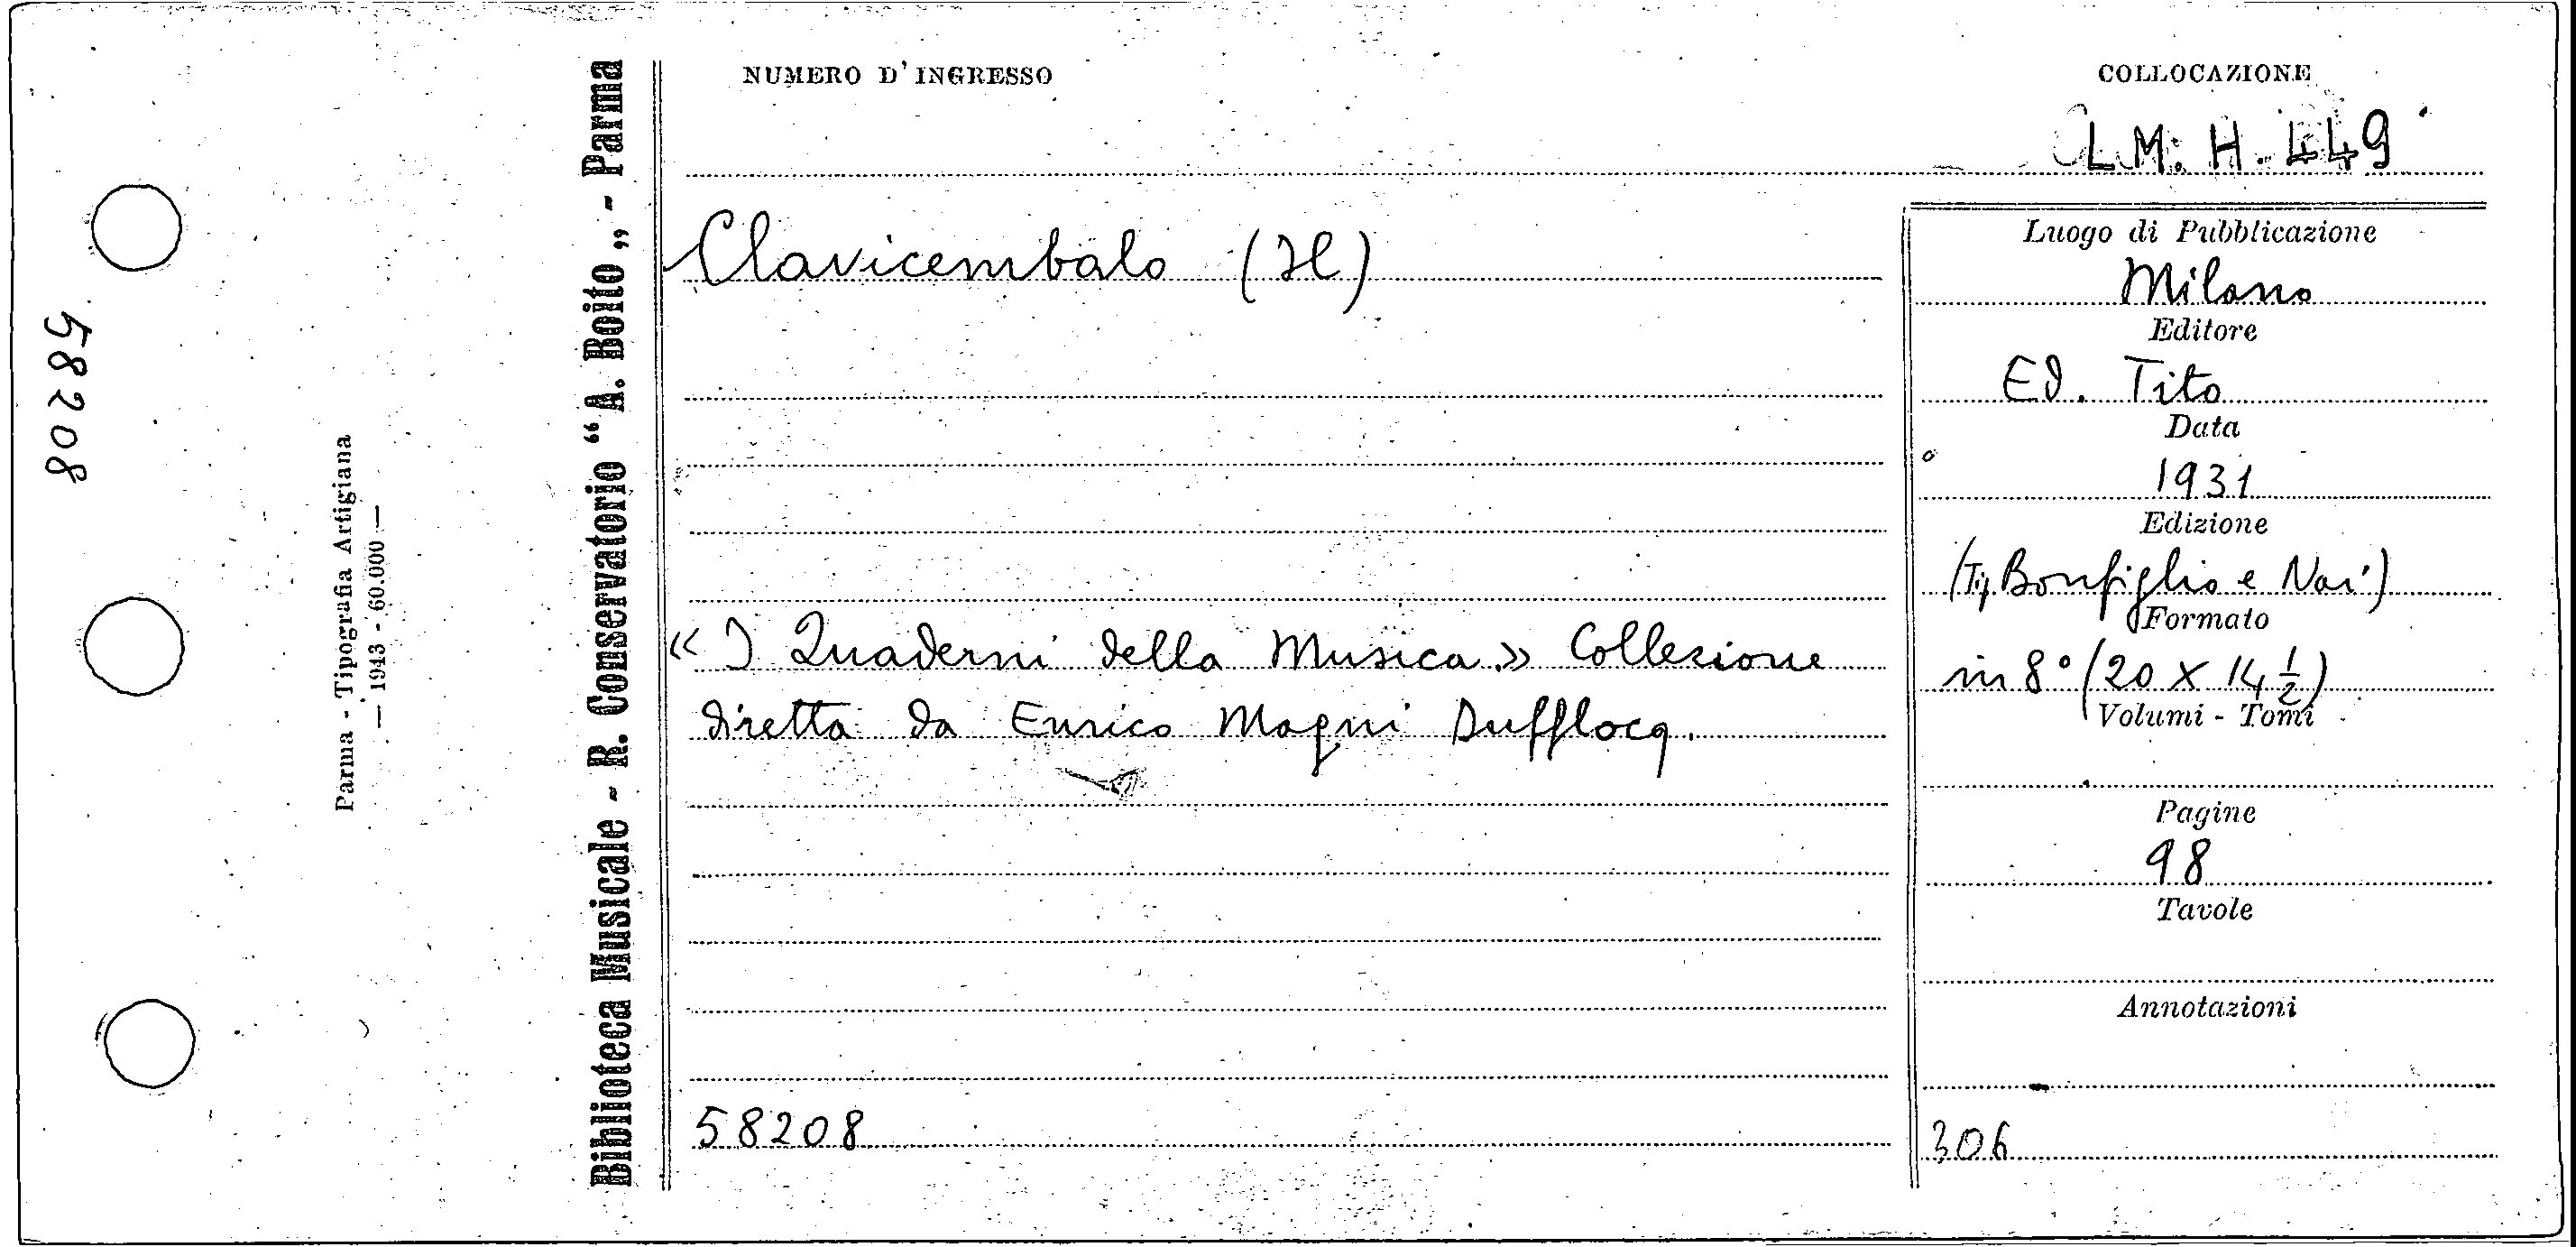 58208
Parma - Tipografia Artigiana
— 1943 - 60.000 —
Biblioteca Musicale - R. Conservatorio "A. Boito„ - Parma
NUMERO D'INGRESSO
COLLOCAZIONE
LM. H. 449
Clavicembalo (Il)
« I Quaderni della Musica.» Collezione
diretta da Enrico Magni Dufflocq.
58208
Luogo di Pubblicazione
Milano
Editore
Ed. Tito
Data
1931
Edizione
(Tip. Bonfiglio e Nai)
Formato
in 8° (20 x 14 ½)
Volumi - Tomi
Pagine
98
Tavole
Annotazioni
306